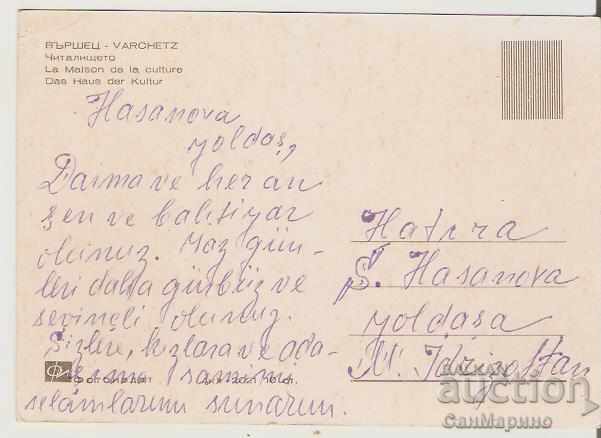 ВЪРШЕЦ - VARCHETZ
Читалището
La Maison de la culture
Das Haus der Kultur
Hasanova
yoldaş,
Daima ve her an
şen ve bahtiyar
olunuz. Yaz gün-
leri daha gürbüz ve
sevinçli olunuz.
Sizlere, kızlara ve
samimi
selâmlarımı sunarım.
Hatıra
Ş. Hasanova
yoldaşa
N. İdriz oftan
ФОТОИЗДАТ
auction
СанМарино